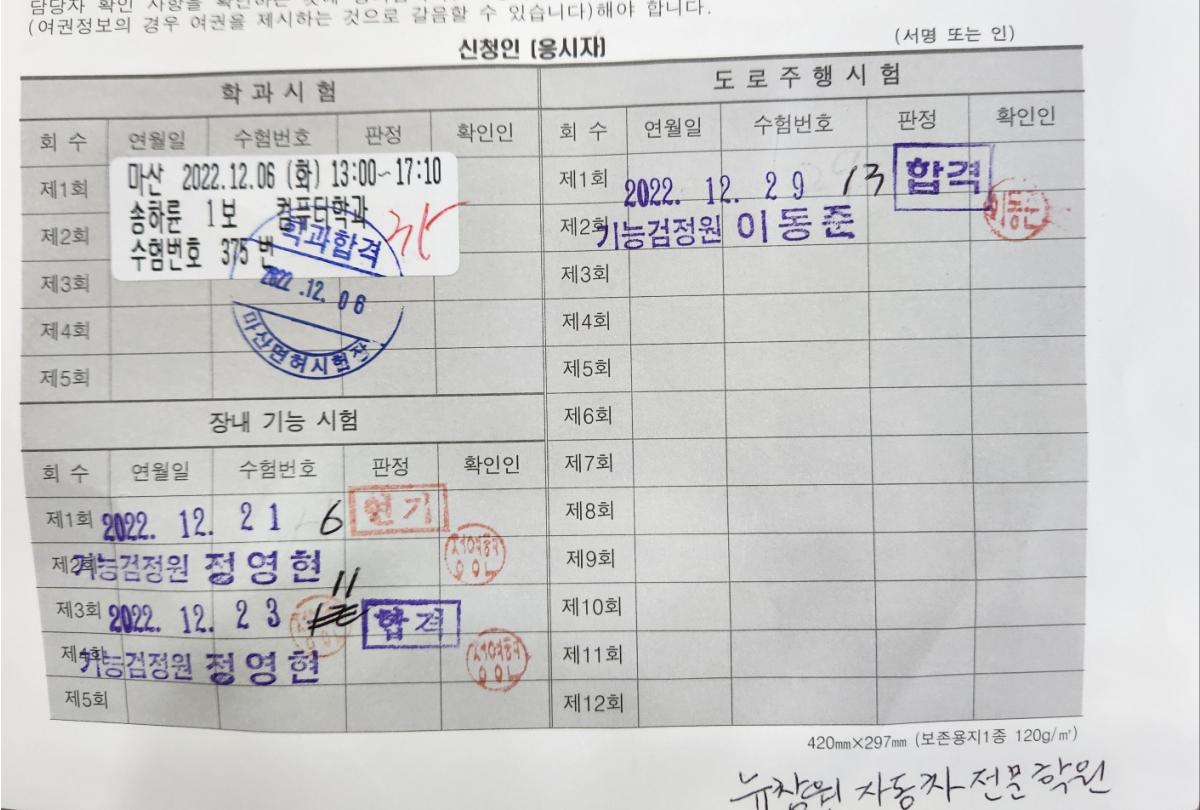 담당자 확인 사항을
(여권정보의 경우 여권을 제시하는 것으로 갈음할 수 있습니다)해야 합니다.
신청인 [응시자]
(서명 또는 인)
학 과 시 험
회 수 연월일 수험번호 판정 확인인
제1회
제2회
제3회
제4회
제5회
마산 2022.12.06 (화) 13:00~17:10
송하륜 1보 컴퓨터학과
수험번호 375 번
학과합격
2022.12.06
마산면허시험장
장내 기능 시험
회 수 연월일 수험번호 판정 확인인
제1회 2022. 12. 21 6 연기
제2회 기능검정원 정영현
제3회 2022. 12. 23 11 합격
제4회 기능검정원 정영현
제5회
도 로 주 행 시 험
회 수 연월일 수험번호 판정 확인인
제1회 2022. 12. 29 13 합격
제2회 기능검정원 이동준
제3회
제4회
제5회
제6회
제7회
제8회
제9회
제10회
제11회
제12회
420㎜×297㎜ (보존용지1종 120g/㎡)
뉴창원 자동차전문학원